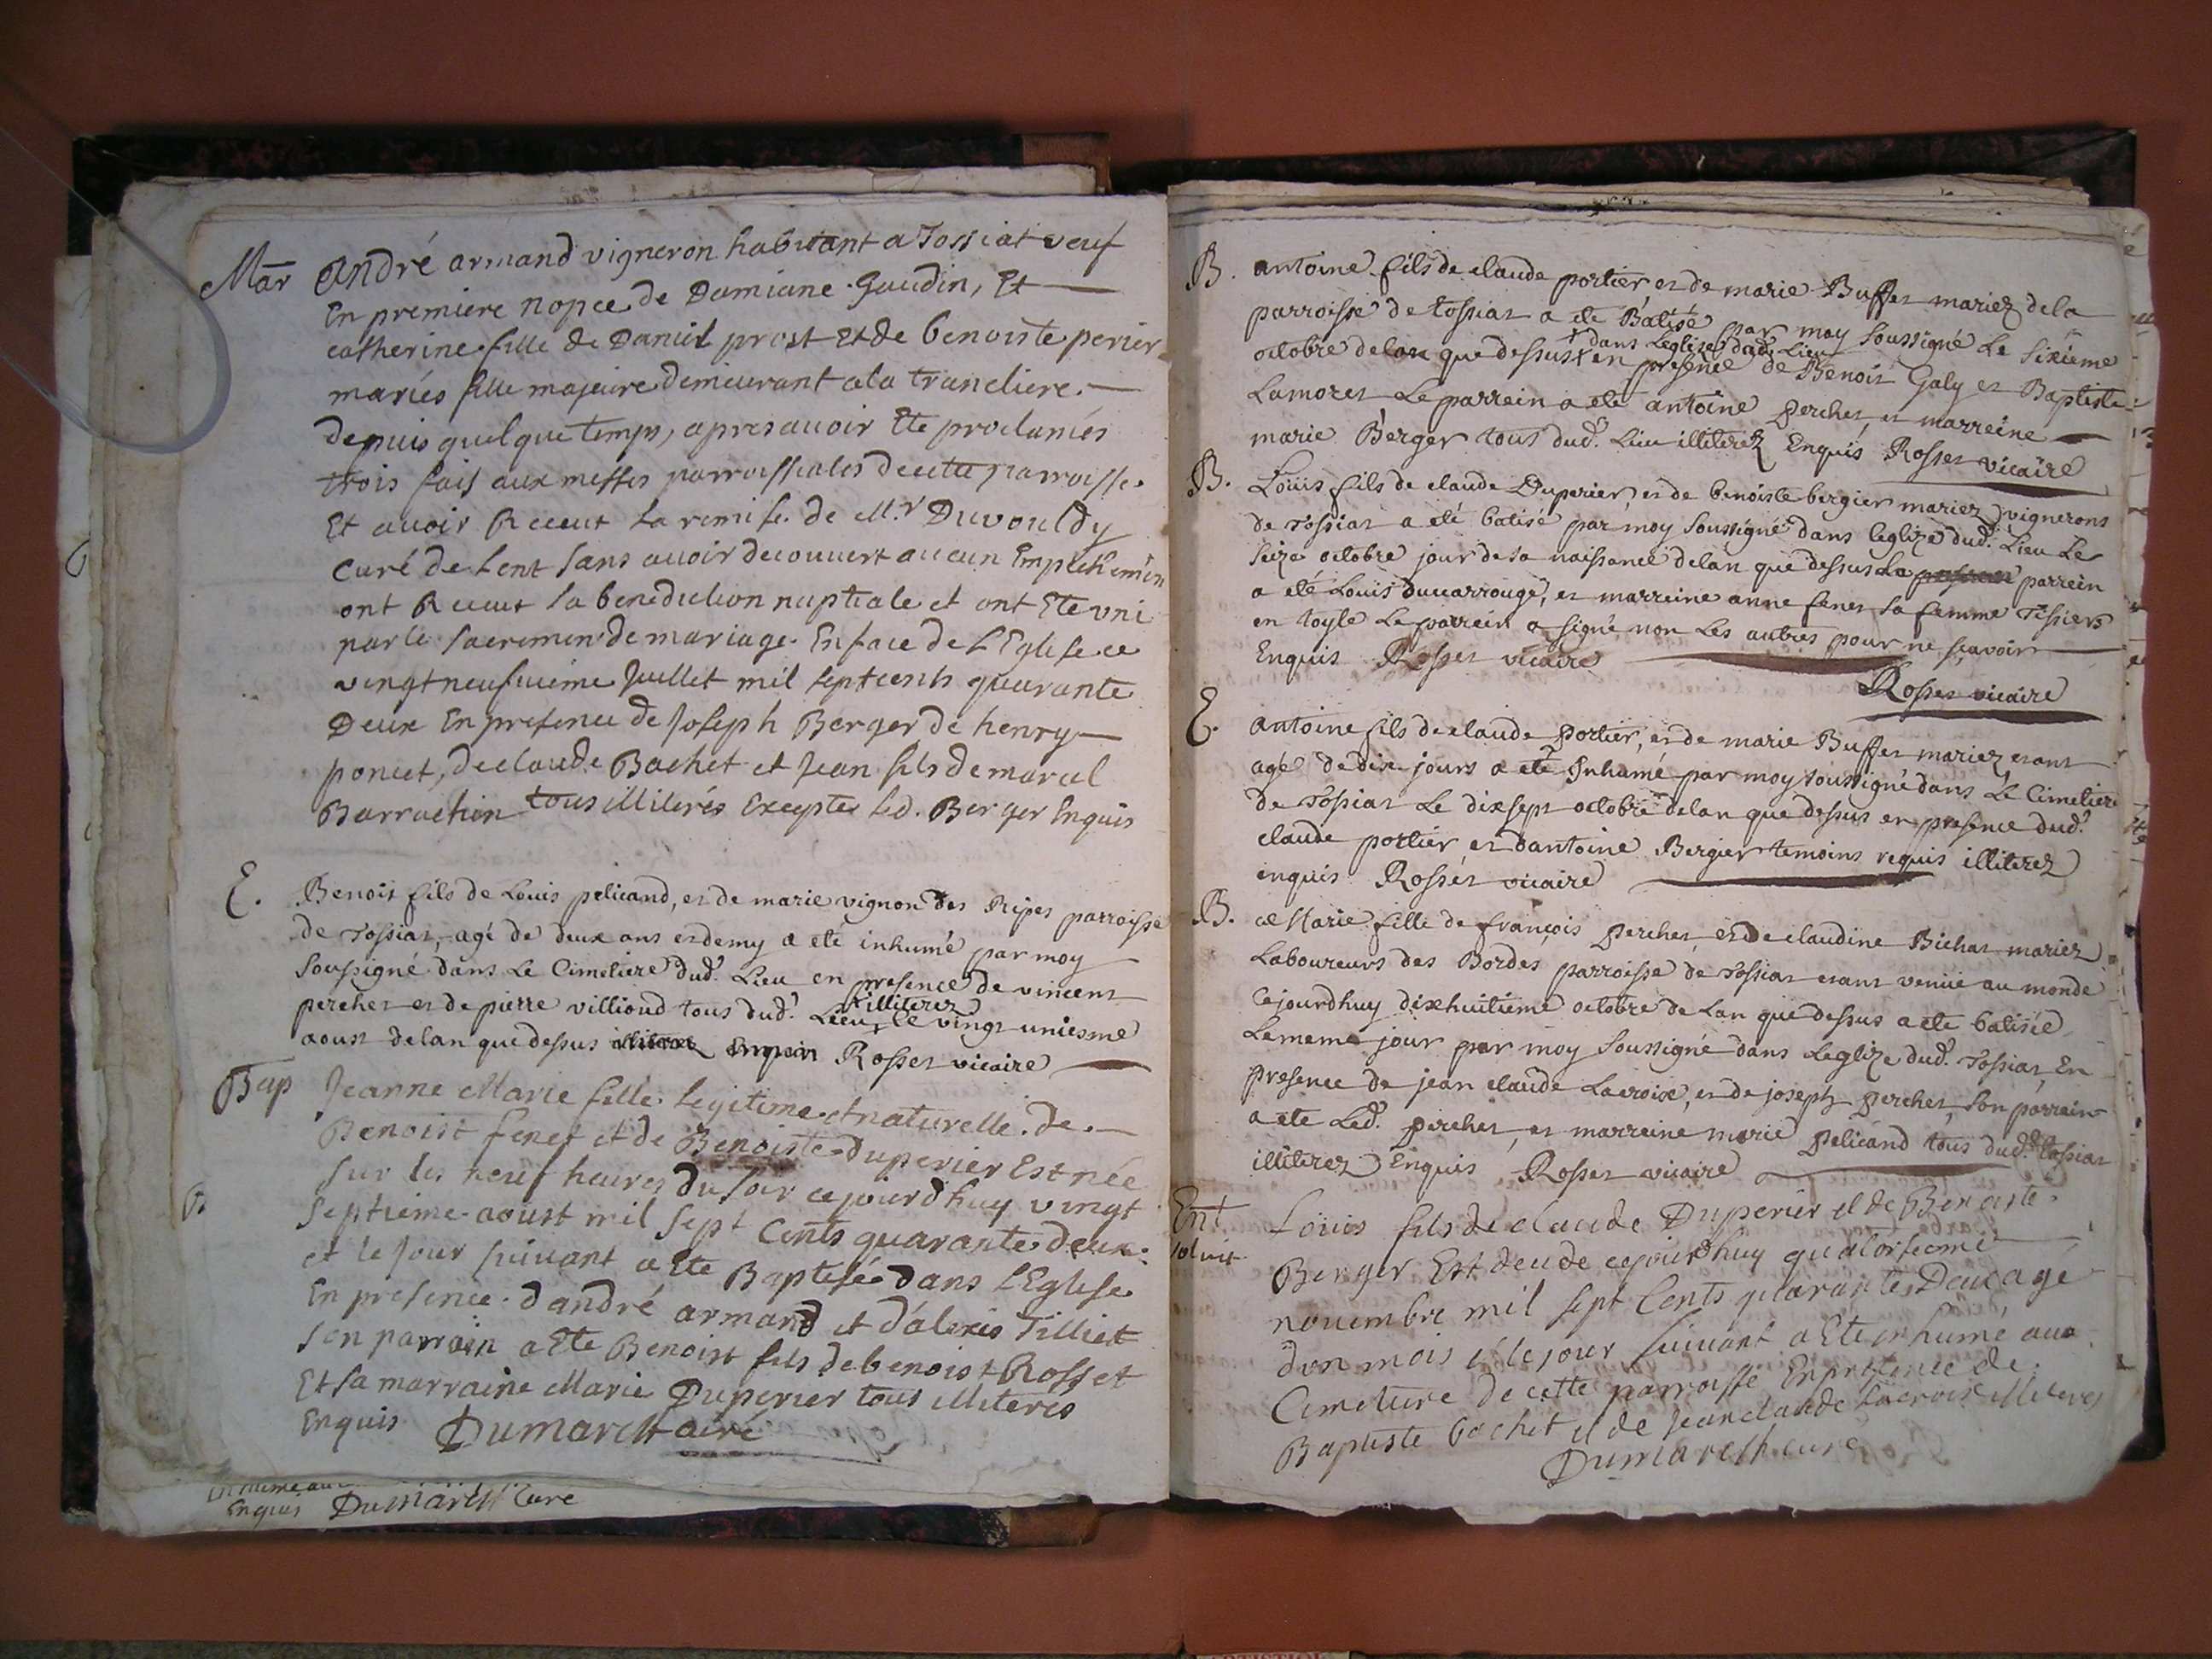 Mar André armand vigneron habitant a Tossiat veuf
En premiere nopce de Damiane Gaudin, Et
catherine fille de Daniel prost Et de benoiste perier
mariés fille majeure demeurant a la trancliere.
depuis quelque temps, apres avoir Ete proclamés
trois fois aux messes parroissiales de cette parroisse
Et avoir Receut la remise de Mr Duvouldy
Curé de Lent sans avoir decouvert aucun Empechemen
ont Receut la benediction nuptiale et ont Ete uni
par le sacremen de mariage En face de L'Eglise ce
vingt neufvieme Juillet mil sept cents quarante
Deux En presence de Joseph Berger de henry
poncet, de claude Bachet et Jean fils de marcel
Barrachin tous illiterés Excepté led. Berger Enquis
E. Benoit fils de Louis pelicand, et de marie vignon des Ripes parroisse
de Tossiat, agé de deux ans et demy a eté inhumé par moy
soussigné dans Le Cimetiere dud. Lieu en presence de vincent
perchet et de pierre villioud tous dud. Lieu, illiterez Le vingt uniesme
aoust de lan que dessus illiterez Enquis Rosset vicaire
Bap Jeanne Marie fille Legitime et naturelle de
Benoist fenet et de Benoiste duperier Est née
sur les neuf heures du soir cejourdhuy vingt
septieme aoust mil sept Cents quarante deux
et le Jour suivant a Ete Baptisée dans L'Eglise
En presence d'andré armand et d'alexis Tilliet
son parrain a Ete Benoist fils de benoist Rosset
Et sa marraine Marie Duperier tous illiterés
Enquis Dumarest curé
Enquis Dumarest Curé
B. antoine fils de claude portier et de marie Buffet mariez de la
parroisse de tossiat a ete Batisé par moy soussigné Le sixieme
octobre de lan que dessus + dans Leglize dud. Lieu en presence de Benoit Galy et Baptiste
Lamoret Le parrein a eté antoine perchet, et marreine
marie Berger tous dud. Lieu illiterez Enquis Rosset vicaire
B. Loüis fils de claude Duperier, et de benoiste bergier mariez vignerons
de Tossiat a eté batisé par moy soussigné dans leglize dud. Lieu Le
seize octobre jour de sa naissance de lan que dessus La parrein
a eté Louis ducarrouge, et marreine anne fenet sa femme Tissiers
en toyle Le parrein a signé non Les autres pour ne sçavoir
Enquis Rosset vicaire
Rosset vicaire
E. antoine fils de claude portier, et de marie Buffet mariez etant
agé de dix jours a eté Inhumé par moy soussigné dans Le Cimetiere
de Tossiat Le dix sept octobre de lan que dessus en presence dud.
claude portier et dantoine Bergier temoins requis illiterez
enquis Rosset vicaire
B. Marie fille de françois perchet et de claudine Bichat mariez
Laboureurs des Bordes parroisse de Tossiat etant venüe au monde
cejourdhuy dixhuitieme octobre de Lan que dessus a ete batisée
Le meme jour par moy soussigné dans Leglize dud. Tossiat En
presence de jean claude Lacroix, et de joseph perchet, son parrein
a ete Led. perchet, et marreine marie pelicand tous dud. tossiat
illiterez Enquis Rosset vicaire
Ent Loüis fils de claude Duperier et de Benoiste
solvit Berger Est decede cejourdhuy quatorsieme
novembre mil sept Cents quarante Deux agé
d'un mois et le jour suivant a Ete inhumé au
Cimetiere de cette parroisse En presence de
Baptiste bochet et de Jean claude Lacroix illiterés
Dumarest curé